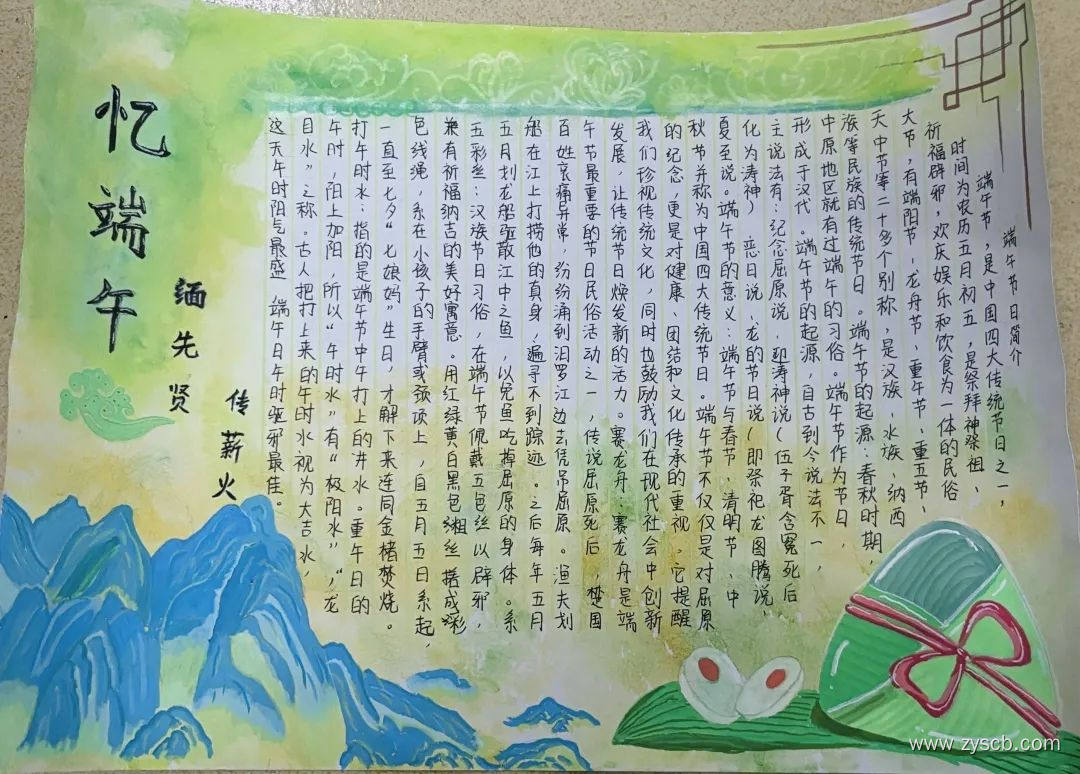 忆端午
缅先贤
传薪火
端午节日简介
端午节，是中国四大传统节日之一，
时间为农历五月初五，是祭拜神祭祖、
祈福辟邪，欢庆娱乐和饮食为一体的民俗
大节，有端阳节，龙舟节，重午节，重五节，
天中节等二十多个别称 是汉族，水族，纳西
族等民族的传统节日。端午节的起源：春秋时期，
中原地区就有过端午的习俗。端午节作为节日，
形成于汉代。端午节的起源，自古到今说法不一，
主说法有：纪念屈原说，迎涛神说（伍子胥含冤死后
化为涛神） 恶日说，龙的节日说（即祭祀龙图腾说，
夏至说。端午节的意义：端午节与春节，清明节，中
秋节并称为中国四大传统节日。端午节不仅仅是对屈原
的纪念，更是对健康、团结和文化传承的重视。它提醒
我们珍视传统文化，同时也鼓励我们在现代社会中创新
发展，让传统节日焕发新的活力。赛龙舟：赛龙舟是端
午节最重要的节日民俗活动之一，传说屈原死后，楚国
百姓哀痛异常，纷纷涌到汨罗江边去凭吊屈原。渔夫划
船在江上打捞他的真身，遍寻不到踪迹。之后每年五月
五月划龙船驱散江中之鱼，以免鱼吃掉屈原的身体。系
五彩丝：汉族节日习俗，在端午节佩戴五色丝以辟邪，
兼有祈福纳吉的美好寓意。用红绿黄白黑色细丝搓成彩
色线绳，系在小孩子的手臂或颈项上，自五月五日系起，
一直至七夕“七娘妈”生日，才解下来连同金楮焚烧。
打午时水：指的是端午节中午打上的井水。重午日的
午时，阳上加阳，所以“午时水”有“极阳水”，“龙
目水”之称。古人把打上来的午时水视为大吉水，
这天午时阳气最盛，端午日午时驱邪最佳。
www.zyscb.com